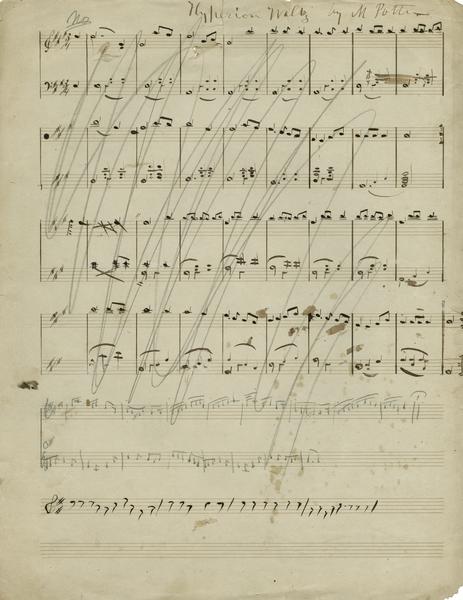 No
Hyperion Waltz by M Potter